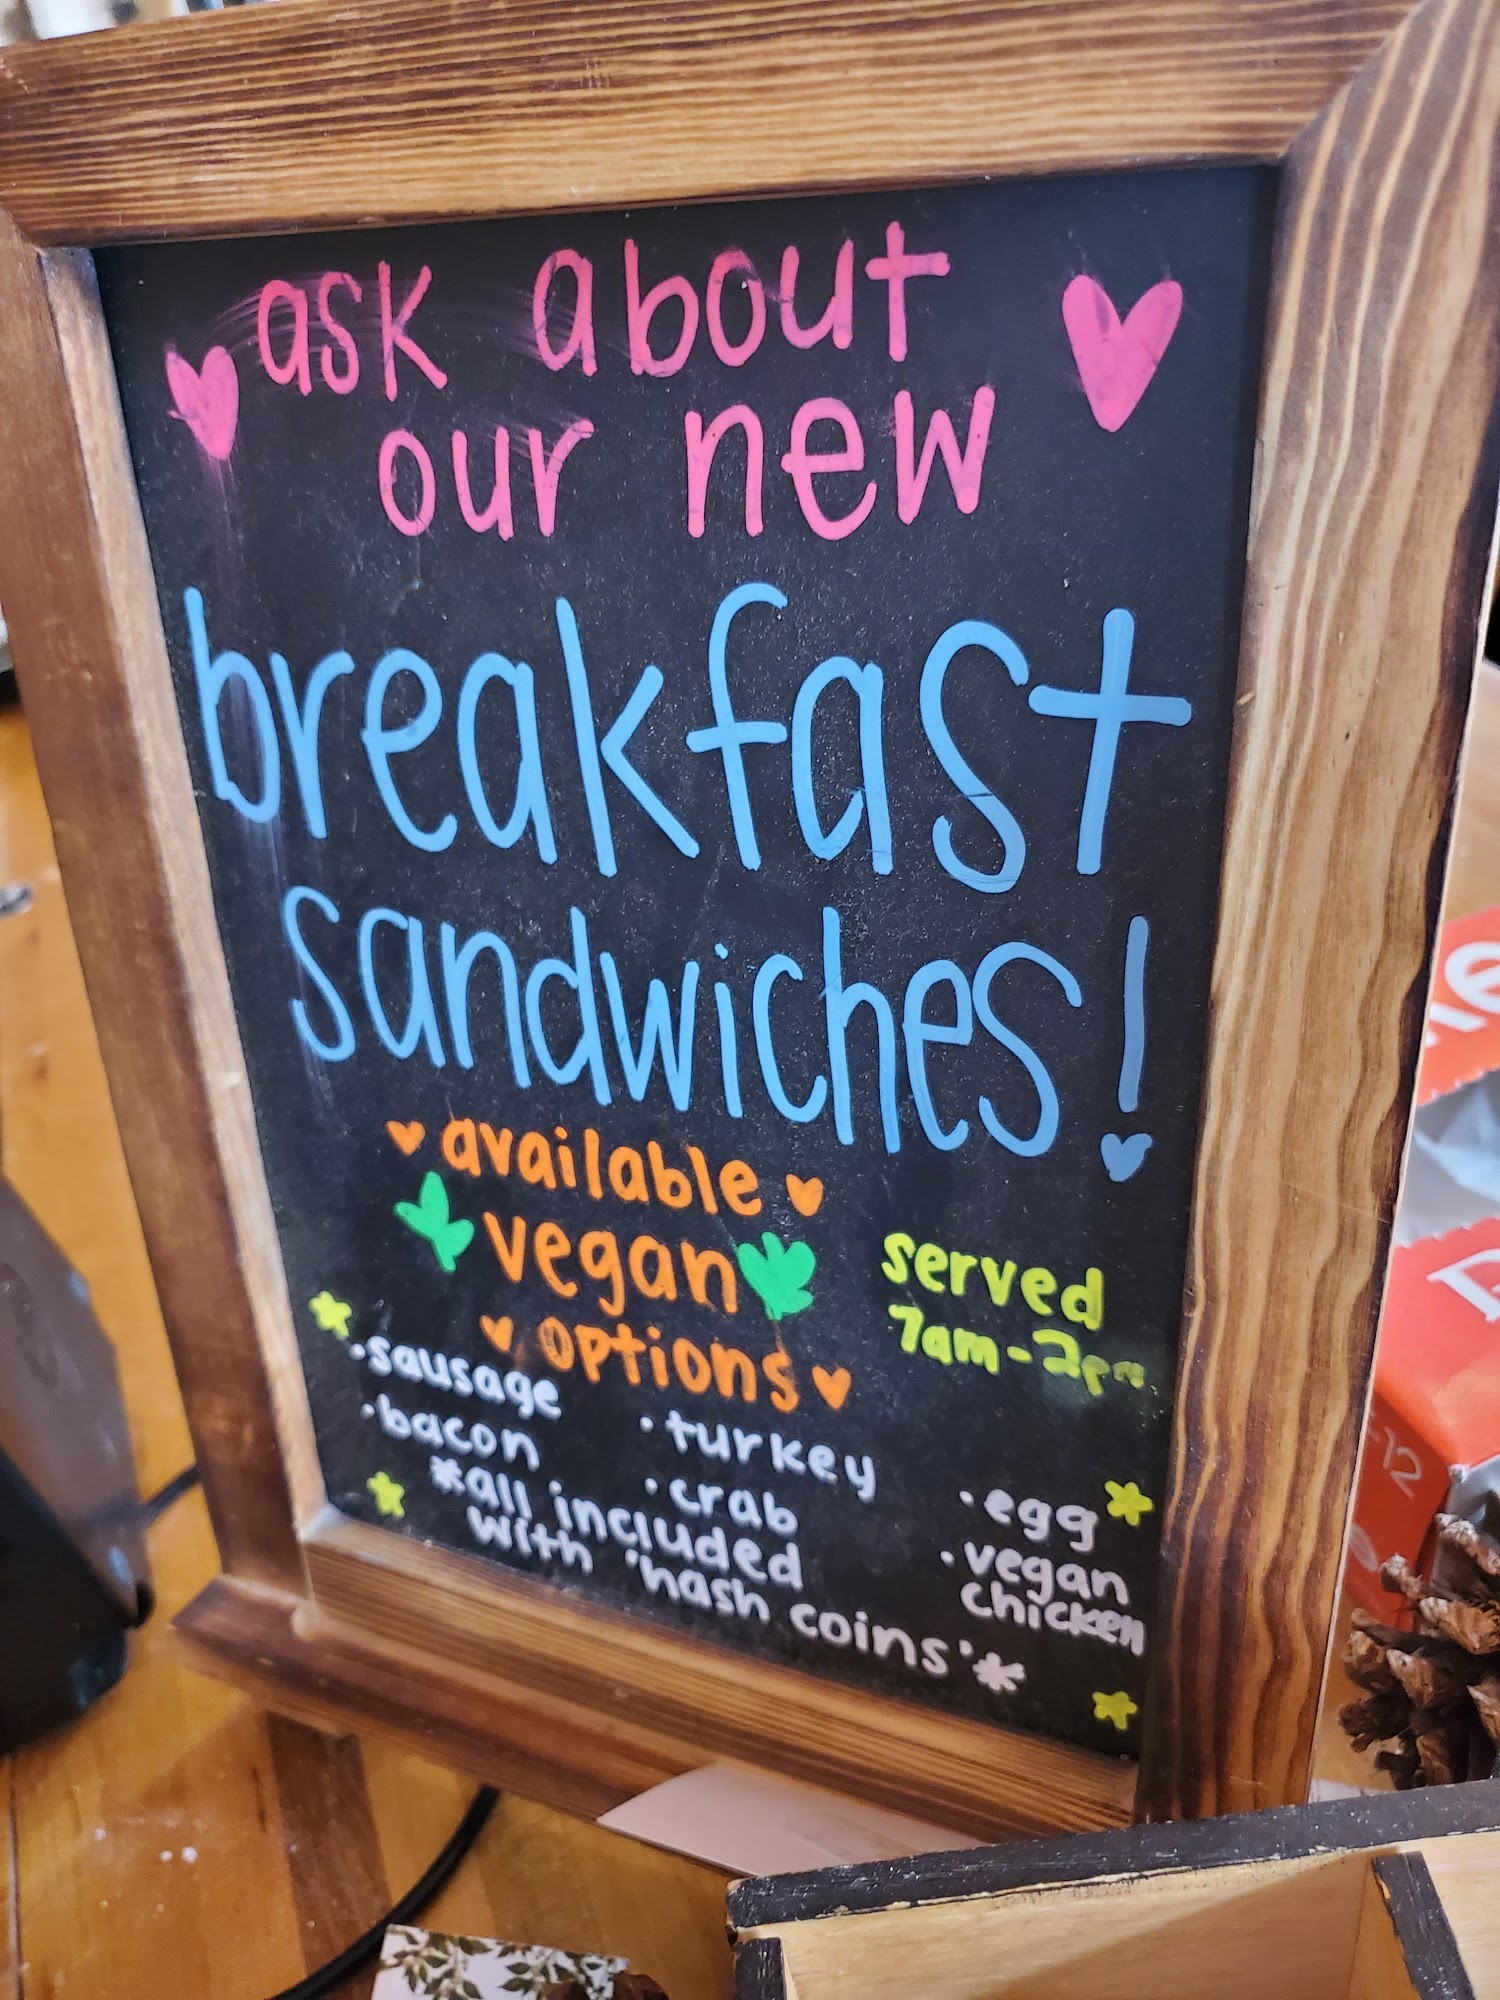 ask about
our new
breakfast
sandwiches!
available
vegan
options
served
7am-2pm
·sausage
·bacon
·turkey
·crab
·egg
·vegan
chicken
*all included
with 'hash coins'*
-12